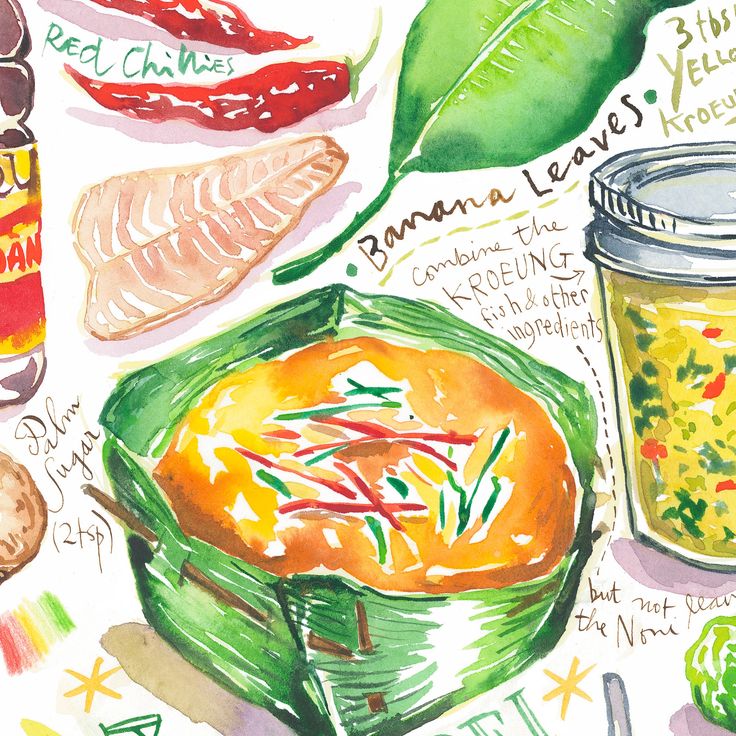 RED CHiLLiES
3 tbsp
YELLO
KROEUN
Banana Leaves.
combine the
KROEUNG
fish & other
ingredients
DAN
Palm
Sugar
(2tsp)
but not leav
the Noni